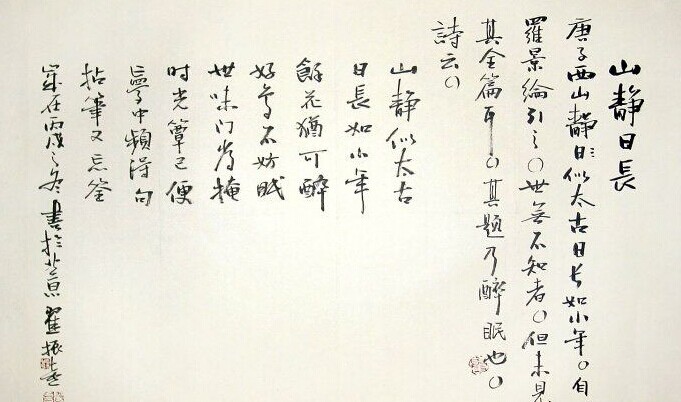 山靜日長
唐子西山靜日似太古日长如小年。自
羅景綸引之。世無不知者。但未見
其全篇耳。其題乃醉眠也。
詩云。
山靜似太古
日長如小年
餘花猶可醉
好鳥不妨眠
世味门常掩
时光簟已便
夢中頻得句
拈筆又忘筌
歲在丙戌之冬 書於 翟振